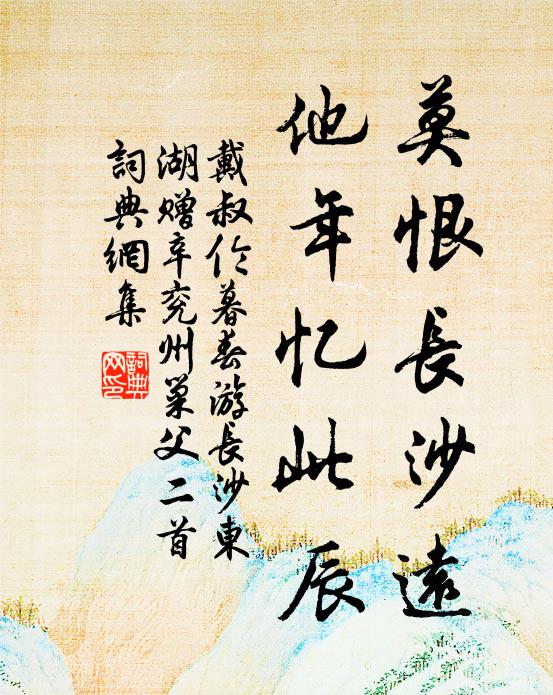 莫恨長沙遠
他年忆此辰
戴叔伦暮春游長沙東
湖赠辛兖州巢父二首
詞典網集
詞典
网印